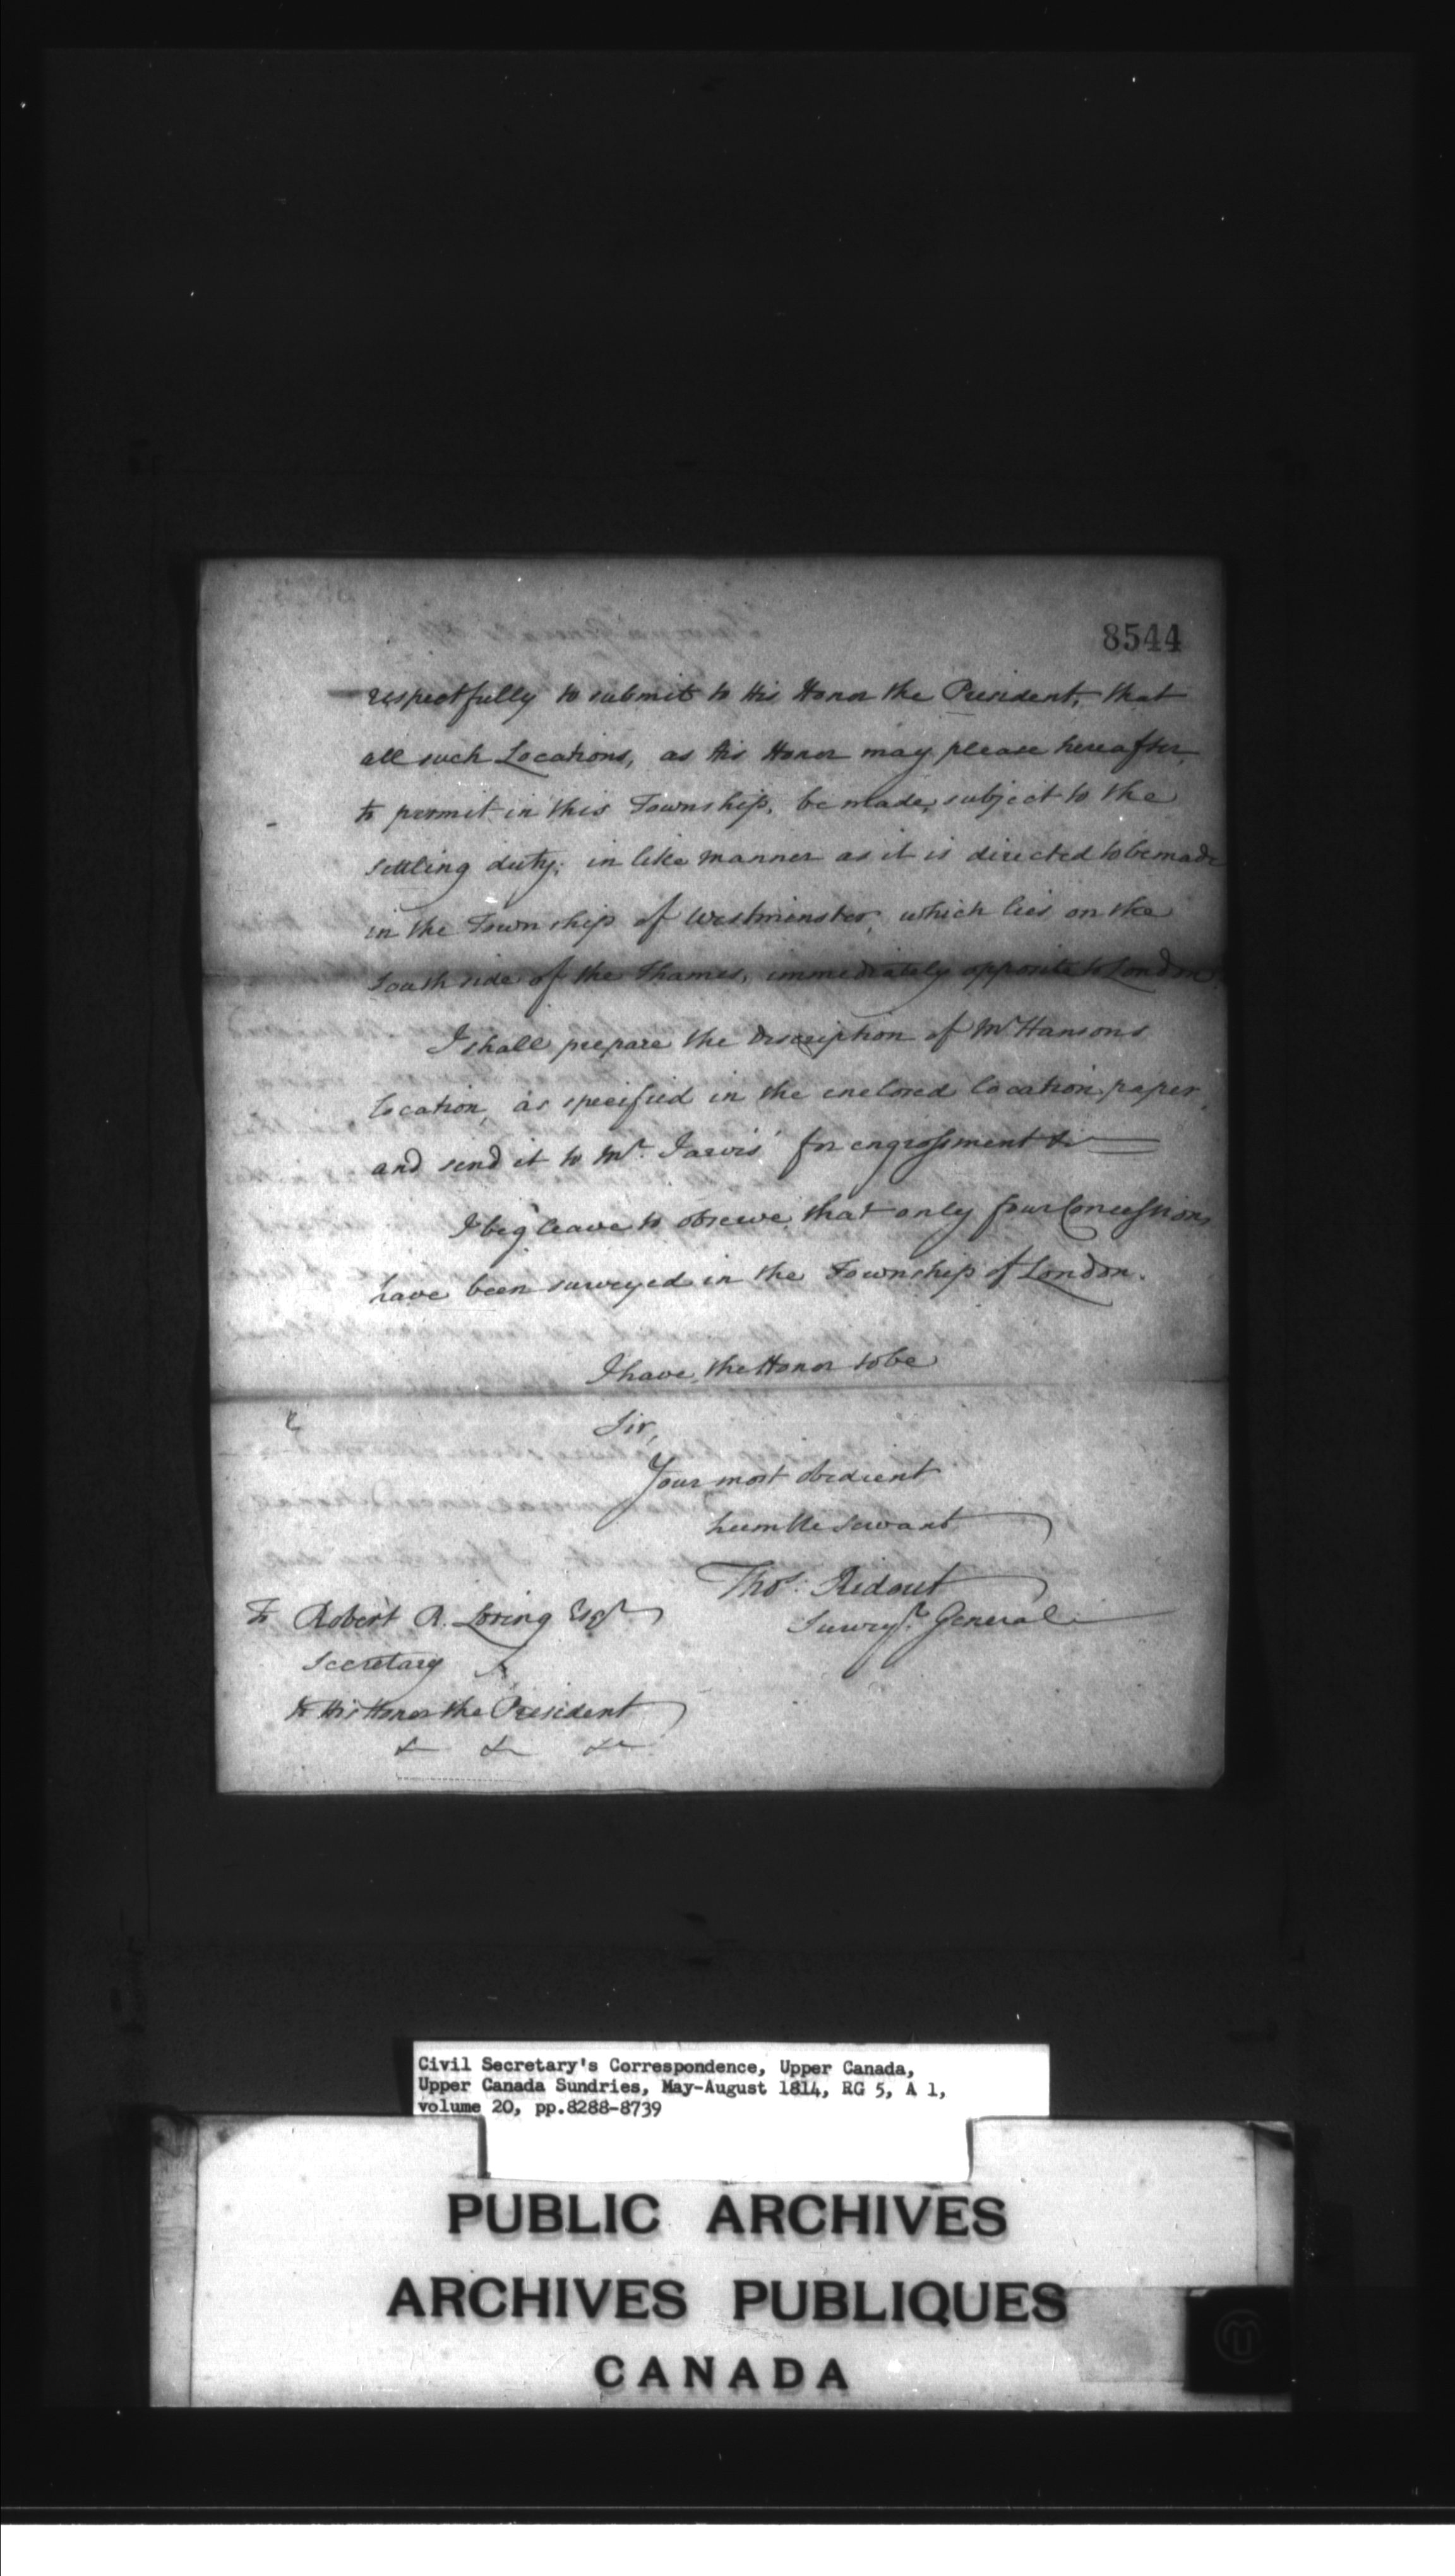 8544
respectfully to submit to His Honor the President, that
all such Locations, as His Honor may please hereafter,
to permit in this Township, be made, subject to the
settling duty; in like manner as it is directed to be made
in the Township of Westminster, which lies on the
South side of the Thames, immediately opposite to London.
I shall prepare the Description of Mr Hansons
location, as specified in the enclosed location paper,
and send it to Mr. Jarvis for engrossment &c
I beg leave to observe, that only four Concessions
have been surveyed in the Township of London.
I have, the Honor to be
Sir,
Your most obedient
humble servant
Thos. Ridout
Survey.r General
To Robert R. Loring Esqr
Secretary
to His Honor the President
&c &c &c
Civil Secretary's Correspondence, Upper Canada,
Upper Canada Sundries, May-August 1814, RG 5, A 1,
volume 20, pp.8288-8739
PUBLIC ARCHIVES
ARCHIVES PUBLIQUES
CANADA